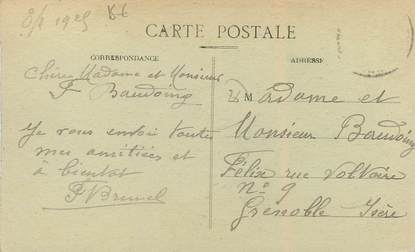 8/2 1925
CARTE POSTALE
CORRESPONDANCE
ADRESSE
Chère Madame et Monsieur
F Baudoing
Je vous envoi toutes
mes amitiées et
à bientot
Madame et
Monsieur Baudoing
Félise rue Voltaire
Nº 9
Grenoble Isère